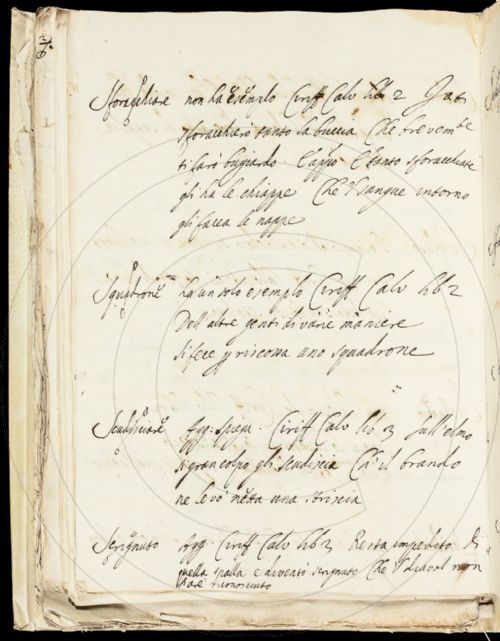 Sforacchiare non ha esemplo Ciriff Calv lib 2
sforacchierò tanto la buccia Che brevemte
ti farò bugiardo E appo E tanto sforacchiate
gli ha le chiappe Che 'l sangue intorno
gli facea le nappe
Squadrone ha un solo esemplo Ciriff Calv lib 2
Dell'altre genti di varie maniere
si fece p riscossa uno squadrone
agg: spega. Ciriff Calv lib 3 sull'elmo
gran colpo gli scudiscia Ca' il brando
ne levò netta una striscia
Scrignuto agg Ciriff Calv lib 3 Resta impedito di
quella spalla e diventò scrignuto Che 'l diavol non
riconosciuto